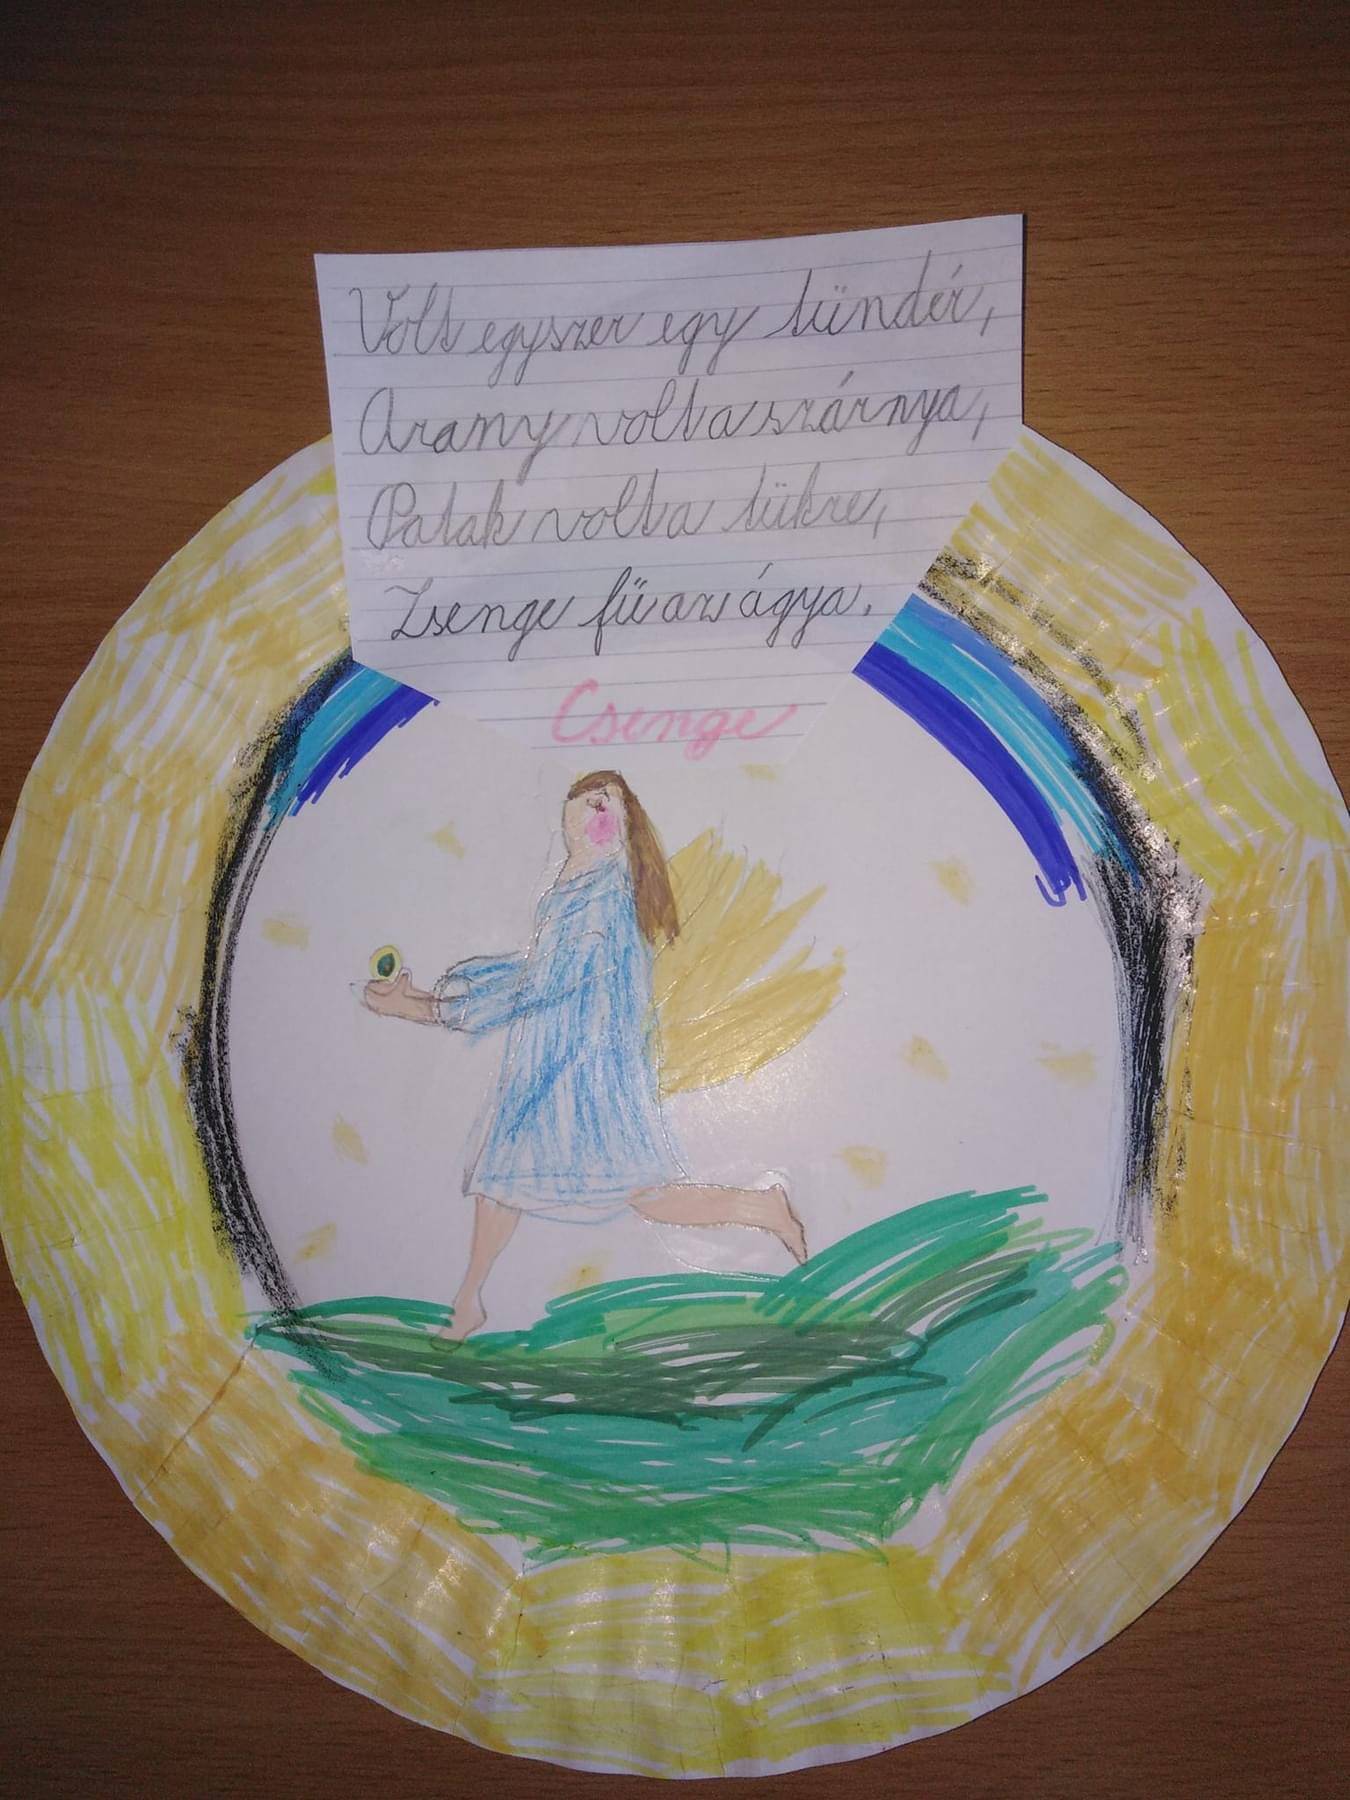 Volt egyszer egy tündér,
Arany volt a szárnya,
Patak volt a tükre,
Zsenge fű az ágya.
Csenge